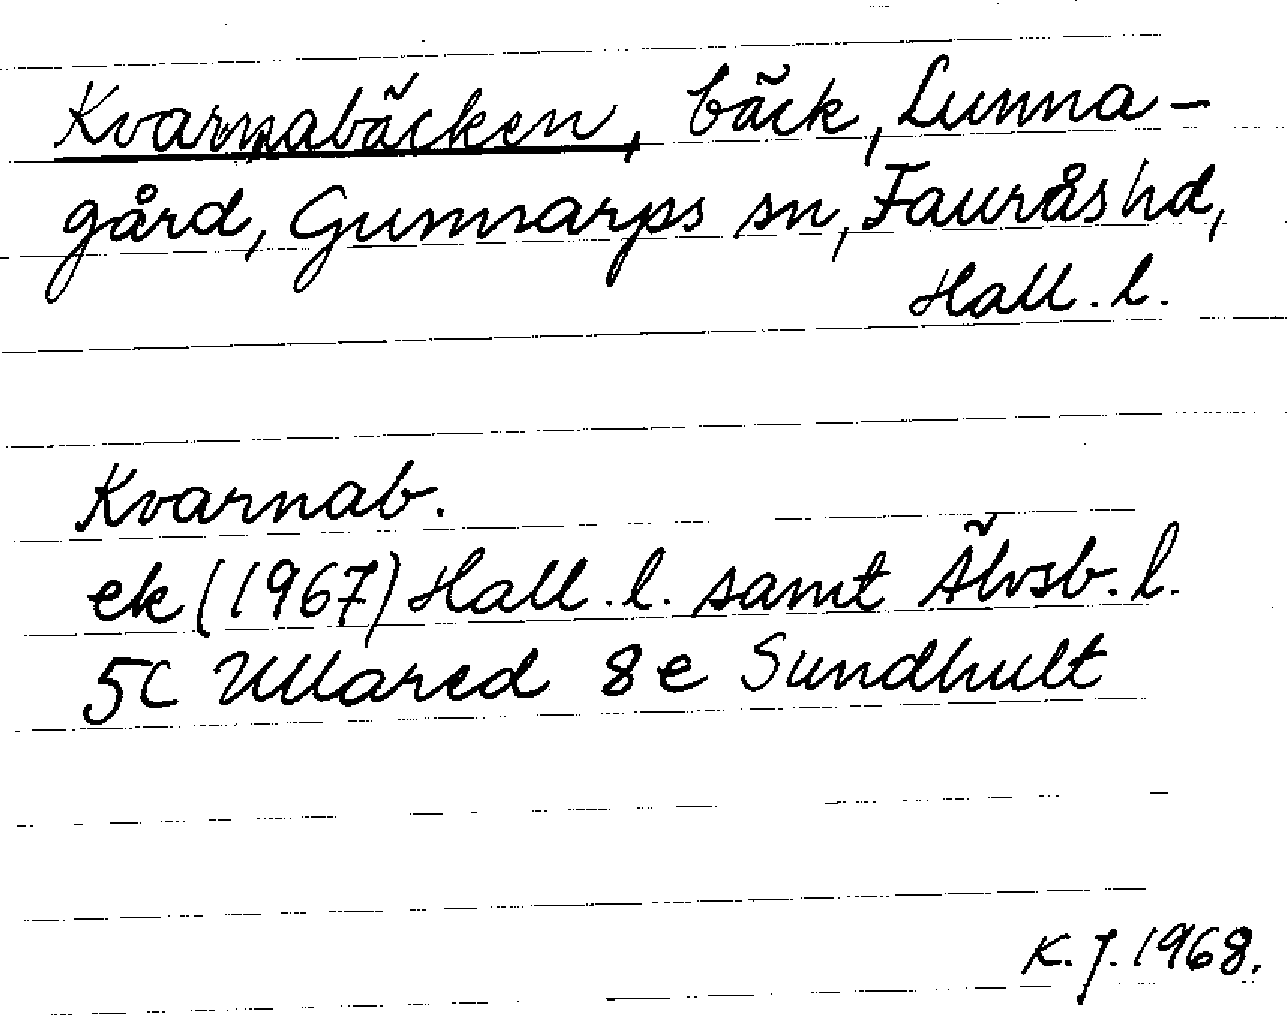 Kvarnabäcken, bäck, Lunna-
gård, Gunnarps sn, Fauråshd,
Hall. l.
Kvarnab.
ek (1967) Hall. l. samt Älvsb. l.
5C Ullared 8e Sundhult
K. J. 1968.